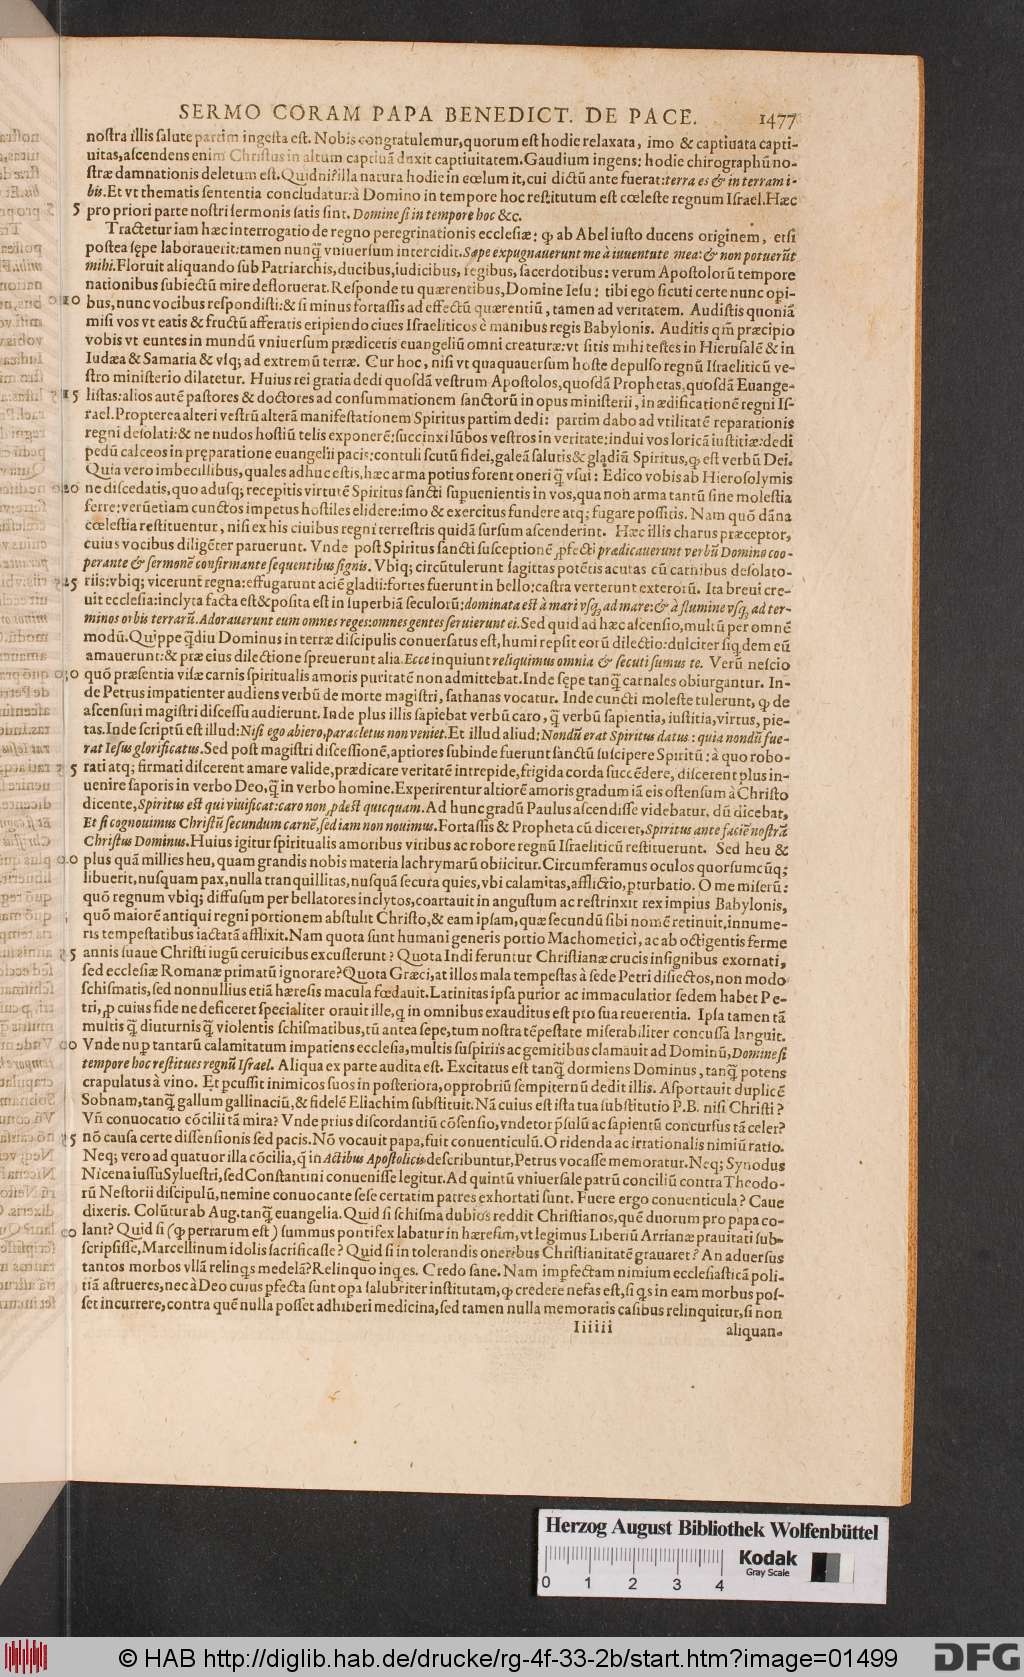 SERMO CORAM PAPA BENEDICT. DE PACE. 1477
noſtra illis ſalute partim ingeſta eſt. Nobis congratulemur, quorum eſt hodie relaxata, imo & captiuata capti-
uitas, aſcendens enim Chriſtus in altum captiuā duxit captiuitatem. Gaudium ingens: hodie chirographū no-
ſtræ damnationis deletum eſt. Quidni? illa natura hodie in cœlum it, cui dictū ante fuerat: terra es & in terram i-
bis. Et vt thematis ſententia concludatur: à Domino in tempore hoc reſtitutum eſt cœleſte regnum Iſrael. Hæc
5 pro priori parte noſtri ſermonis ſatis ſint. Domine ſi in tempore hoc &c.
Tractetur iam hæc interrogatio de regno peregrinationis eccleſiæ: ꝙ ab Abel iuſto ducens originem, etſi
poſtea ſępe laborauerit: tamen nunq̄ vniuerſum intercidit. Sæpe expugnauerunt me à iuuentute mea: & non potuerūt
mihi. Floruit aliquando ſub Patriarchis, ducibus, iudicibus, regibus, ſacerdotibus: verum Apoſtolorū tempore
nationibus ſubiectū mire defloruerat. Reſponde tu quærentibus, Domine Ieſu: tibi ego ſicuti certe nunc opi-
10 bus, nunc vocibus reſpondiſti: & ſi minus fortaſſis ad effectū quærentiū, tamen ad veritatem. Audiſtis quoniā
miſi vos vt eatis & fructū afferatis eripiendo ciues Iſraeliticos è manibus regis Babylonis. Auditis qm̄ præcipio
vobis vt euntes in mundū vniuerſum prædicetis euangeliū omni creaturæ: vt ſitis mihi teſtes in Hieruſalē & in
Iudæa & Samaria & vſq; ad extremū terræ. Cur hoc, niſi vt quaquauerſum hoſte depulſo regnū Iſraeliticū ve-
ſtro miniſterio dilatetur. Huius rei gratia dedi quoſdā veſtrum Apoſtolos, quoſdā Prophetas, quoſdā Euange-
15 liſtas: alios autē paſtores & doctores ad conſummationem ſanctorū in opus miniſterii, in ædificationē regni Iſ-
rael. Propterea alteri veſtrū alterā manifeſtationem Spiritus partim dedi: partim dabo ad vtilitatē reparationis
regni deſolati: & ne nudos hoſtiū telis exponerē: ſuccinxi lūbos veſtros in veritate: indui vos loricā iuſtitiæ: dedi
pedū calceos in pręparatione euangelii pacis: contuli ſcutū fidei, galeā ſalutis & gladiū Spiritus, ꝙ eſt verbū Dei.
Quia vero imbecillibus, quales adhuc eſtis, hæc arma potius forent oneri q̄ vſui: Edico vobis ab Hieroſolymis
20 ne diſcedatis, quo aduſq; recepitis virtutē Spiritus ſancti ſupuenientis in vos, qua non arma tantū ſine moleſtia
ferre: verūetiam cunctos impetus hoſtiles elidere: imo & exercitus fundere atq; fugare poſſitis. Nam quō dāna
cœleſtia reſtituentur, niſi ex his ciuibus regni terreſtris quidā ſurſum aſcenderint. Hæc illis charus præceptor,
cuius vocibus diligēter paruerunt. Vnde poſt Spiritus ſancti ſuſceptionē ꝓfecti prædicauerunt verbū Domino coo-
perante & ſermonē confirmante ſequentibus ſignis. Vbiq; circūtulerunt ſagittas potētis acutas cū carnibus deſolato-
25 riis: vbiq; vicerunt regna: effugarunt aciē gladii: fortes fuerunt in bello: caſtra verterunt exterorū. Ita breui cre-
uit eccleſia: inclyta facta eſt & poſita eſt in ſuperbiā ſeculorū: dominata eſt à mari vſq; ad mare: & à flumine vſq; ad ter-
minos orbis terrarū. Adorauerunt eum omnes reges: omnes gentes ſeruierunt ei. Sed quid ad hæc aſcenſio, multū per omnē
modū. Quippe q̄diu Dominus in terræ diſcipulis conuerſatus eſt, humi repſit eorū dilectio: dulciter ſiq̄dem eū
amauerunt: & præ eius dilectione ſpreuerunt alia. Ecce inquiunt reliquimus omnia & ſecuti ſumus te. Verū neſcio
quō præſentia viſæ carnis ſpiritualis amoris puritatē non admittebat. Inde ſępe tanq̄ carnales obiurgantur. In-
de Petrus impatienter audiens verbū de morte magiſtri, ſathanas vocatur. Inde cuncti moleſte tulerunt, ꝙ de
aſcenſuri magiſtri diſceſſu audierunt. Inde plus illis ſapiebat verbū caro, q̄ verbū ſapientia, iuſtitia, virtus, pie-
tas. Inde ſcriptū eſt illud: Niſi ego abiero, paracletus non veniet. Et illud aliud: Nondū erat Spiritus datus: quia nondū fue-
rat Ieſus glorificatus. Sed poſt magiſtri diſceſſionē, aptiores ſubinde fuerunt ſanctū ſuſcipere Spiritū: à quo robo-
5 rati atq; firmati diſcerent amare valide, prædicare veritatē intrepide, frigida corda ſuccēdere, diſcerent plus in-
uenire ſaporis in verbo Deo, q̄ in verbo homine. Experirentur altiorē amoris gradum iā eis oſtenſum à Chriſto
dicente, Spiritus eſt qui viuificat: caro non ꝓdeſt quicquam. Ad hunc gradū Paulus aſcendiſſe videbatur, dū dicebat,
Et ſi cognouimus Chriſtū ſecundum carnē, ſed iam non nouimus. Fortaſſis & Propheta cū diceret, Spiritus ante faciē noſtrā
Chriſtus Dominus. Huius igitur ſpiritualis amoribus viribus ac robore regnū Iſraeliticū reſtituerunt. Sed heu &
plus quā millies heu, quam grandis nobis materia lachrymarū obiicitur. Circumferamus oculos quorſumcūq;
libuerit, nuſquam pax, nulla tranquillitas, nuſquā ſecura quies, vbi calamitas, afflictio, pturbatio. O me miſerū:
quō regnum vbiq; diffuſum per bellatores inclytos, coartauit in anguſtum ac reſtrinxit rex impius Babylonis,
quō maiorē antiqui regni portionem abſtulit Chriſto, & eam ipſam, quæ ſecundū ſibi nomē retinuit, innume-
ris tempeſtatibus iactatā afflixit. Nam quota ſunt humani generis portio Machometici, ac ab octigentis ferme
5 annis ſuaue Chriſti iugū ceruicibus excuſſerunt? Quota Indi feruntur Chriſtianæ crucis inſignibus exornati,
ſed eccleſiæ Romanæ primatū ignorare? Quota Græci, at illos mala tempeſtas à ſede Petri diſiectos, non modo
ſchiſmatis, ſed nonnullius etiā hæreſis macula fœdauit. Latinitas ipſa purior ac immaculatior ſedem habet Pe-
tri, ꝓ cuius fide ne deficeret ſpecialiter orauit ille, q̄ in omnibus exauditus eſt pro ſua reuerentia. Ipſa tamen tā
multis q̄ diuturnis q̄ violentis ſchiſmatibus, tū antea ſepe, tum noſtra tēpeſtate miſerabiliter concuſſa languit.
Vnde nup tantarū calamitatum impatiens eccleſia, multis ſuſpiriis ac gemitibus clamauit ad Dominū, Domine ſi
tempore hoc reſtitues regnū Iſrael. Aliqua ex parte audita eſt. Excitatus eſt tanq̄ dormiens Dominus, tanq̄ potens
crapulatus à vino. Et pcuſſit inimicos ſuos in poſteriora, opprobriū ſempiternū dedit illis. Aſportauit duplicē
Sobnam, tanq̄ gallum gallinaciū, & fidelē Eliachim ſubſtituit. Nā cuius eſt iſta tua ſubſtitutio P.B. niſi Chriſti?
Vn̄ conuocatio cōcilii tā mira? Vnde prius diſcordantiū cōſenſio, vnde tot p̄ſulū ac ſapientū concurſus tā celer?
5 nō cauſa certe diſſenſionis ſed pacis. Nō vocauit papa, fuit conuenticulū. O ridenda ac irrationalis nimiū ratio.
Neq; vero ad quatuor illa cōcilia, q̄ in Actibus Apoſtolicis deſcribuntur, Petrus vocaſſe memoratur. Neq; Synodus
Nicena iuſſu Sylueſtri, ſed Conſtantini conueniſſe legitur. Ad quintū vniuerſale patrū conciliū contra Theodo-
rū Neſtorii diſcipulū, nemine conuocante ſeſe certatim patres exhortati ſunt. Fuere ergo conuenticula? Caue
dixeris. Colūtur ab Aug. tanq̄ euangelia. Quid ſi ſchiſma dubios reddit Chriſtianos, quē duorum pro papa co-
lant? Quid ſi (ꝙ perrarum eſt) ſummus pontifex labatur in hæreſim, vt legimus Liberiū Arrianæ prauitati ſub-
ſcripſiſſe, Marcellinum idolis ſacrificaſſe? Quid ſi in tolerandis oneribus Chriſtianitatē grauaret? An aduerſus
tantos morbos vllā relinqs medelā? Relinquo inqes. Credo ſane. Nam impfectam nimium eccleſiaſticā poli-
tiā aſtrueres, nec à Deo cuius pfecta ſunt opa ſalubriter inſtitutam, ꝙ credere nefas eſt, ſi qs in eam morbus poſ-
ſet incurrere, contra quē nulla poſſet adhiberi medicina, ſed tamen nulla memoratis caſibus relinquitur, ſi non
Iiiiii aliquan-
Herzog August Bibliothek Wolfenbüttel
Kodak
Gray Scale
0 1 2 3 4
© HAB http://diglib.hab.de/drucke/rg-4f-33-2b/start.htm?image=01499
DFG